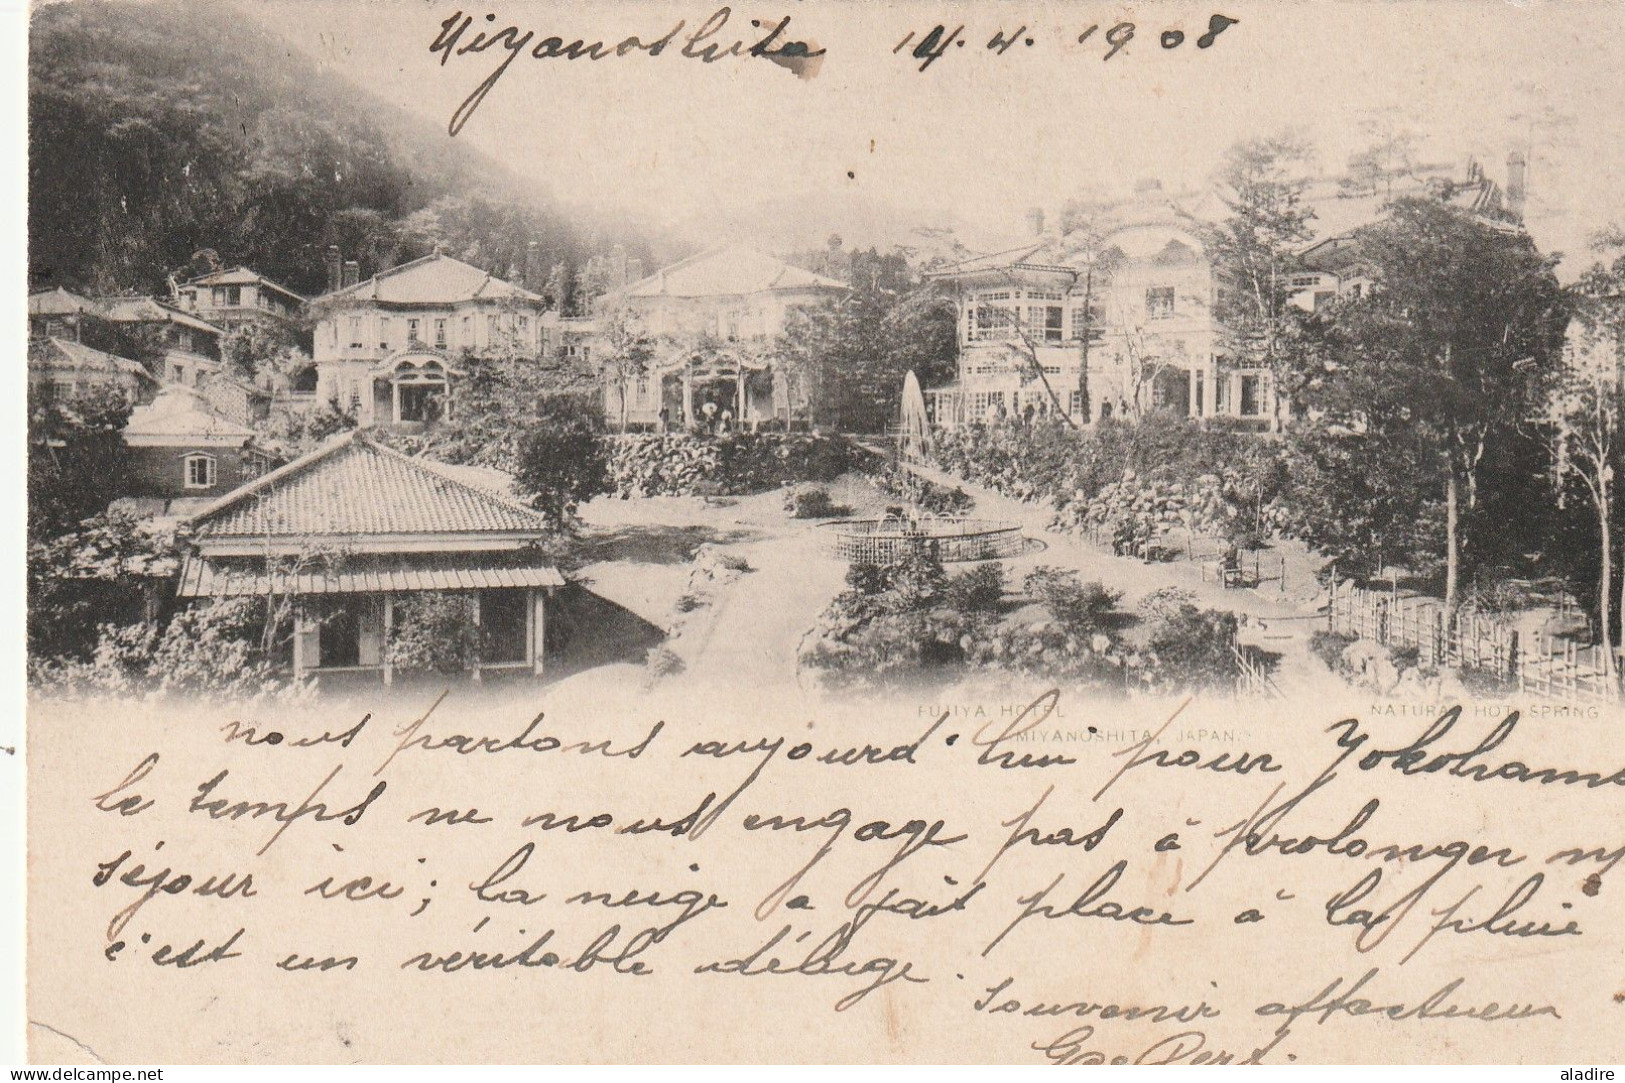 Miyanoshita 14.4.1908
FUJIYA HOTEL NATURAL HOT SPRING
MIYANOSHITA, JAPAN.
nous partons aujourd'hui pour Yokohama
le temps ne nous engage pas à prolonger
séjour ici; la neige a fait place à la pluie
c'est un véritable déluge.
Souvenir affectueux
aladire